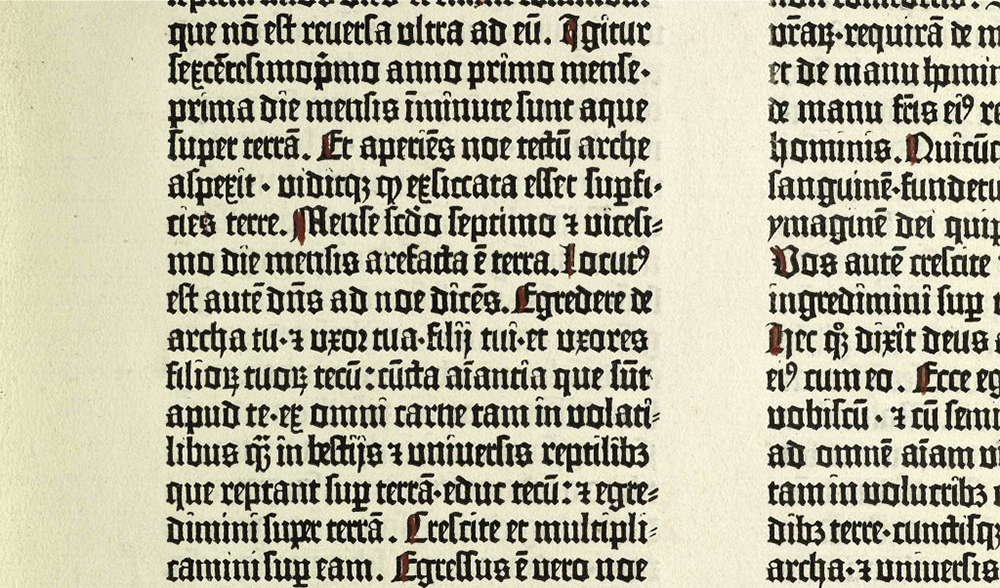 que nō est reuersa ultra ad eū. Igitur
sexcētesimop̄mo anno primo mense·
prima die mensis īminute sunt aque
super terrā. Et aperiēs noe tectū arche
aspexit · uiditqꝫ ꝙ exsiccata esset supfi·
cies terre. Mense scd̄o septimo ⁊ uicesi-
mo die mensis arefacta ē terra. Locutꝰ
est autē dn̄s ad noe dicēs. Egredere de
archa tu·⁊ uxor tua·filij tui·et uxores
filioꝝ tuoꝝ tecū : cūcta aīantia que sūt
apud te·ex omni carne tam in uolati-
libus q̄ꝫ in bestijs ⁊ uniuersis reptilibꝫ
que reptant sup terrā·educ tecū : ⁊ egre-
dimini super terrā. Crescite et multipli-
camini sup eam. Egressus ē uero noe
vr̄aꝝ·requirā de m
et de manu homin
de manu fr̄is eiꝰ re
hominis. Quicūc
sanguinē·fundetu
ymaginē dei quip
Vos autē crescite
ingredimini sup
Hec qꝫ dixit deus
eiꝰ cum eo. Ecce eg
uobiscū · ⁊ cū semi
ad omnē aīam ui
tam in uolucribꝫ
dibꝫ terre·cunctisqꝫ
archa·⁊ uniuersis